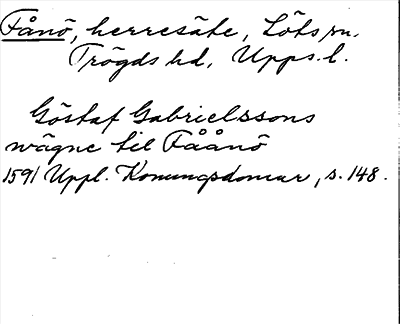 Fånö, herresäte, Löts sn.
Trögds hd, Upps. l.
Göstaf Gabrielssons
wägne til Fåånö
1591 Uppl. Konungsdomar, s. 148.